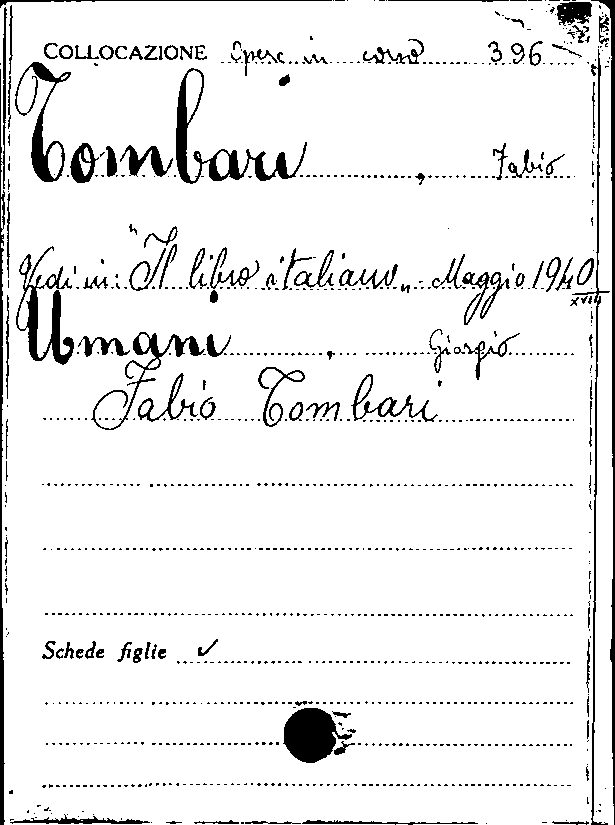 COLLOCAZIONE Opere in corso 396
Tombari, Fabio
Vedi in: "Il libro italiano„ - Maggio 1940
XVIII
Umani, Giorgio
Fabio Tombari
Schede figlie ✓